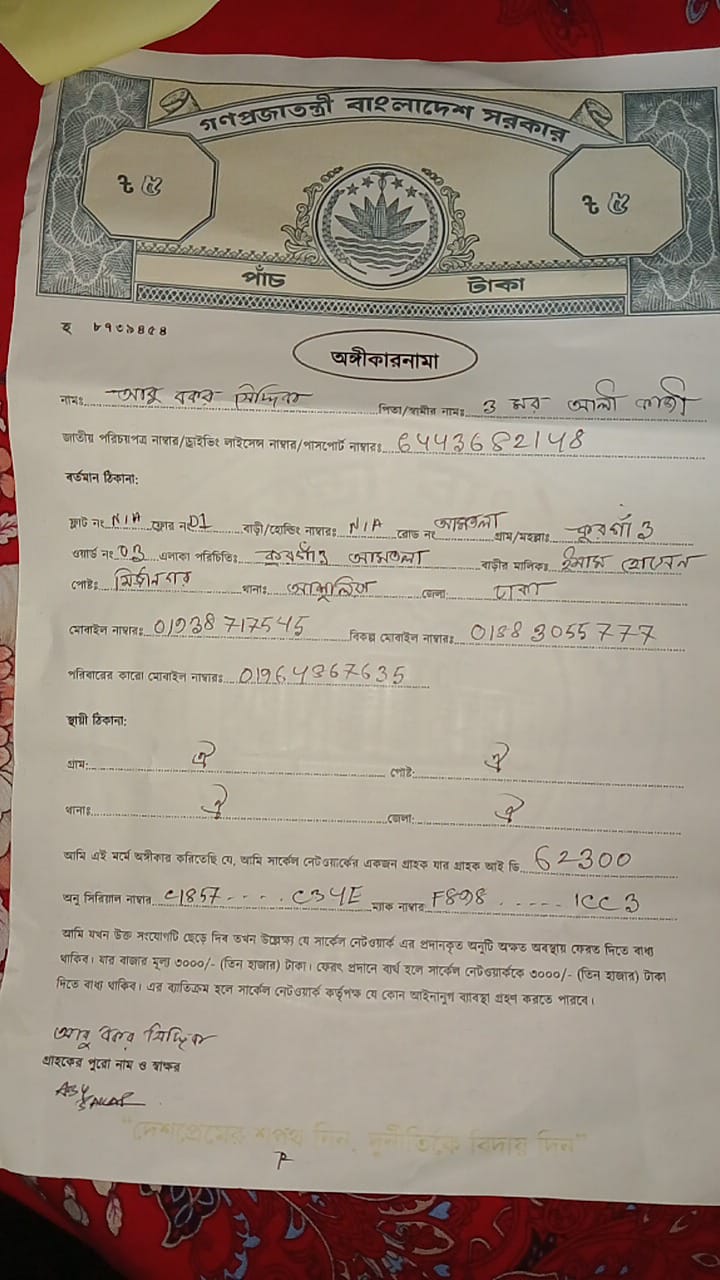 গণপ্রজাতন্ত্রী বাংলাদেশ সরকার
৳ ৫ ৳ ৫
পাঁচ টাকা
হ ৮৭৩৯৪৫৪
অঙ্গীকারনামা
নামঃ আবু বকর সিদ্দিক পিতা/স্বামীর নামঃ ওমর আলী কাজী
জাতীয় পরিচয়পত্র নাম্বার/ড্রাইভিং লাইসেন্স নাম্বার/পাসপোর্ট নাম্বারঃ 6443682148
বর্তমান ঠিকানা:
ফ্লাট নং N/A ফ্লোর নং 01 বাড়ী/হোল্ডিং নাম্বারঃ N/A রোড নং আমতলা গ্রাম/মহল্লাঃ কুরগাঁও
ওয়ার্ড নং 03 এলাকা পরিচিতিঃ কুরগাঁও আমতলা বাড়ীর মালিকঃ ইমাম হোসেন
পোষ্টঃ মির্জানগর থানাঃ আশুলিয়া জেলা: ঢাকা
মোবাইল নাম্বারঃ 01938717545 বিকল্প মোবাইল নাম্বারঃ 01883055777
পরিবারের কারো মোবাইল নাম্বারঃ 01964367635
স্থায়ী ঠিকানা:
গ্রাম: ঐ পোষ্ট: ঐ
থানাঃ ঐ জেলা: ঐ
আমি এই মর্মে অঙ্গীকার করিতেছি যে, আমি সার্কেল নেটওয়ার্কের একজন গ্রাহক যার গ্রাহক আই ডি 62300
অনু সিরিয়াল নাম্বার C1857.....C34E ম্যাক নাম্বার F898......1CC3
আমি যখন উক্ত সংযোগটি ছেড়ে দিব তখন উল্লেক্ষ্য যে সার্কেল নেটওয়ার্ক এর প্রদানকৃত অনুটি অক্ষত অবস্থায় ফেরত দিতে বাধ্য
থাকিব। যার বাজার মূল্য ৩০০০/- (তিন হাজার) টাকা। ফেরৎ প্রদানে ব্যর্থ হলে সার্কেল নেটওয়ার্ককে ৩০০০/- (তিন হাজার) টাকা
দিতে বাধ্য থাকিব। এর ব্যতিক্রম হলে সার্কেল নেটওয়ার্ক কর্তৃপক্ষ যে কোন আইনানুগ ব্যবস্থা গ্রহণ করতে পারবে।
আবু বকর সিদ্দিক
গ্রাহকের পুরো নাম ও স্বাক্ষর
"দেশপ্রেমের শপথ নিন, দুর্নীতিকে বিদায় দিন"